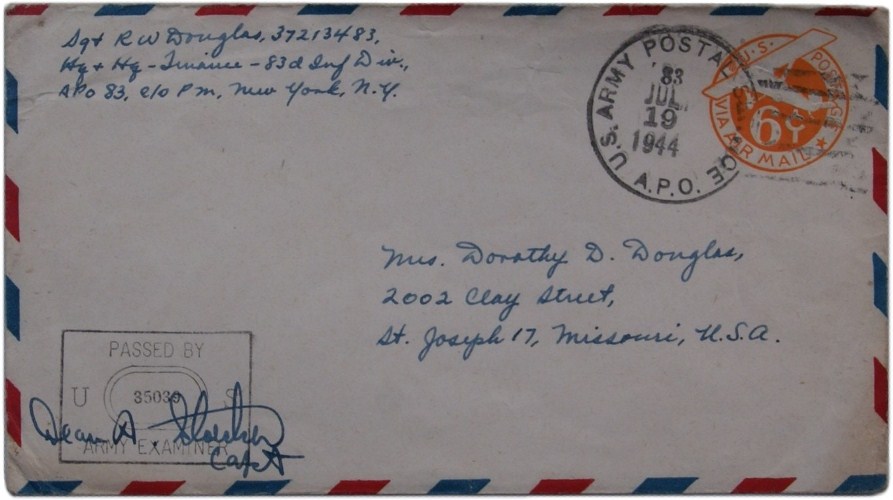 Sgt R W Douglas, 37213483,
Hq & Hq - Finance - 83d Inf Div.,
APO 83, c/o P M, New York, N.Y.
U.S. ARMY POSTAL SERVICE
83
JUL
19
1944
A.P.O.
U.S. POSTAGE
6¢
VIA AIR MAIL
Mrs. Dorothy D. Douglas,
2002 Clay Street,
St. Joseph 17, Missouri, U.S.A.
PASSED BY
U 35039 S
ARMY EXAMINER
Dean A.
Capt